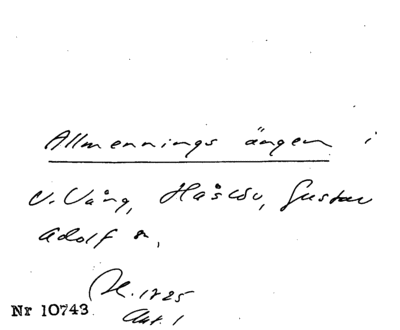 Allmennings ängen i
V. Vång, Håslöv, Gustav
Adolf
1725
Nr 10743
Akt. 1